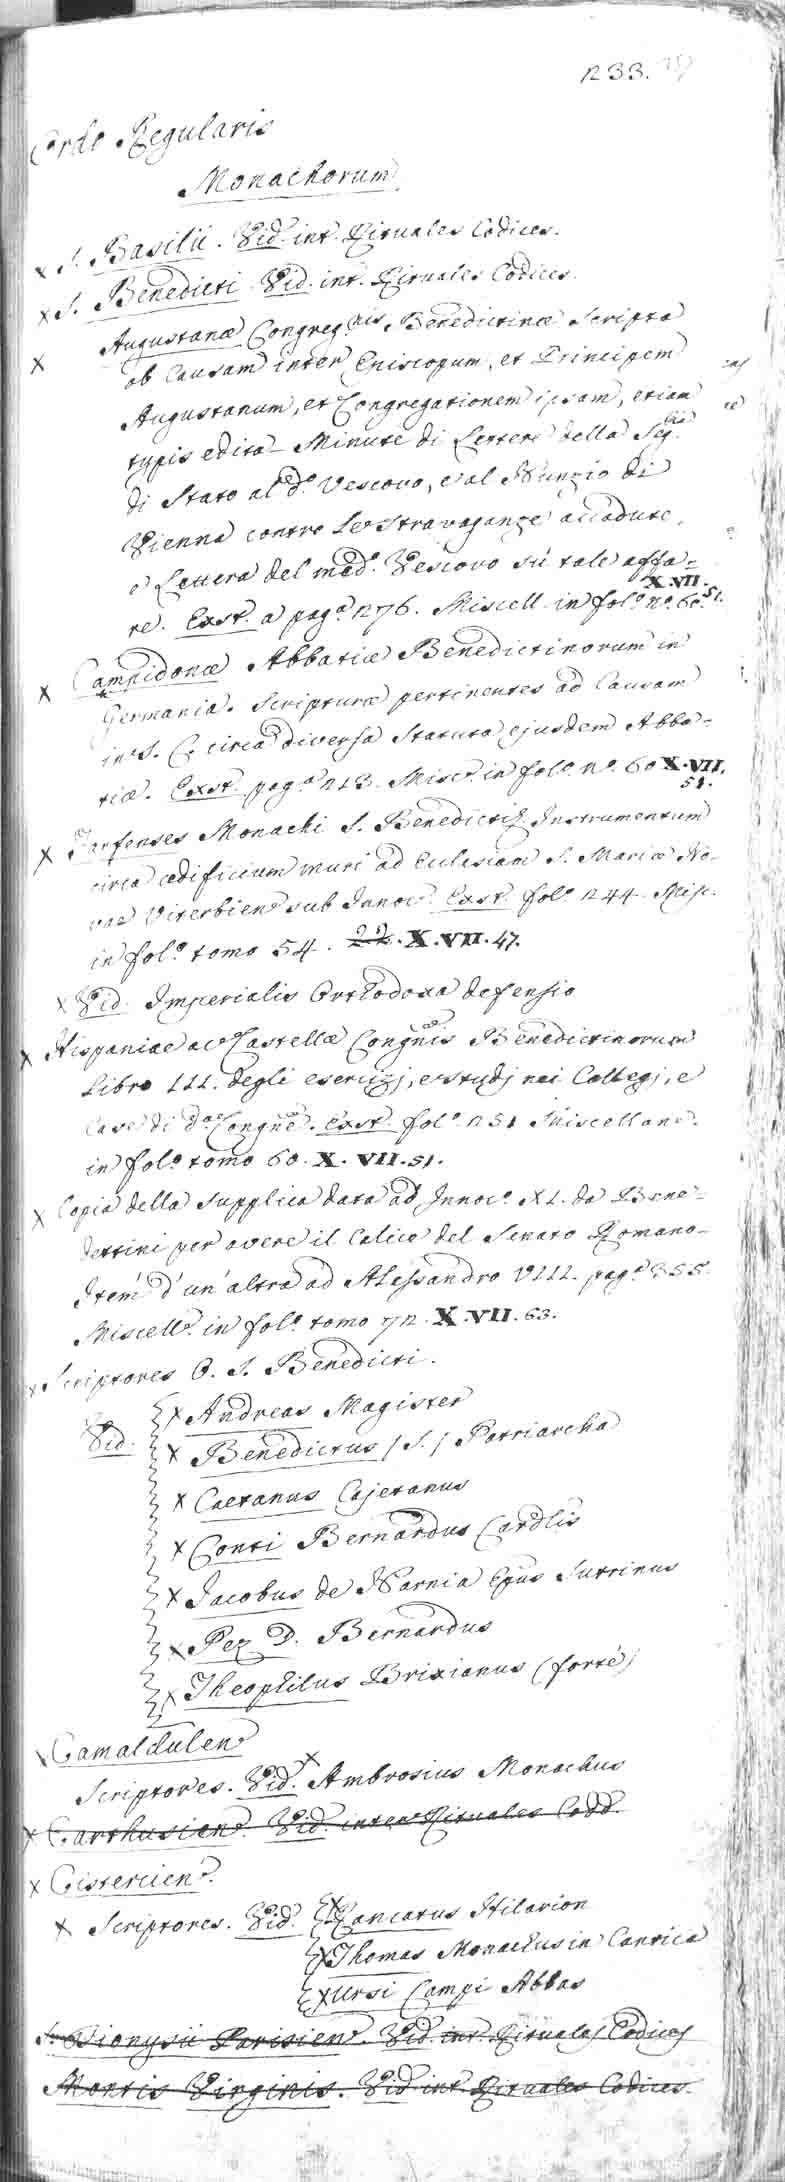 1233.
Ordo Regularis
Monachorum
x S. Basilii. Vid. int. Rituales Codices.
x S. Benedicti Vid. int. Rituales Codices.
x Augustanæ Congreg.nis Benedictinæ Scripta
ob Causam inter Episcopum, et Principem
Augustanum, et Congregationem ipsam, etiam
typis edita - Minute di Lettere della Seg.ria
di Stato al d.o Vescovo, e al Nunzio di
Vienna contro le Stravaganze accadute,
e Lettera del med.o Vescovo sù tale affa-
re. Exst. a pag.a 176. Miscell. in fol.o n.o 60. X.VII.51.
x Campidonæ Abbatiæ Benedictinorum in
Germania. Scripturæ pertinentes ad Causam
in S. C. circa diversa Statuta ejusdem Abba-
tiæ. Exst. pag.a 113. Misc. in fol.o n.o 60 X.VII.
51.
x Farfenses Monachi S. Benedicti. Instrumentum
circa ædificium muri ad Ecclesiam S. Mariæ No-
vae Viterbien sub Innoc. Exst. fol.o 144. Misc.
in fol.o tomo 54. 22. X.VII.47.
x Vid. Imperialis Orthodoxa defensio
x Hispaniae ac Castellæ Congñis Benedictinorum
Libro III. degli esercizj, e studj nei Collegj, e
Case di d.a Congñe. Exst. fol.o 151 Miscellan.
in fol.o tomo 60. X. VII. 51.
x Copia della supplica data ad Innoc.o XI. da Bene-
dettini per avere il Calice del Senato Romano-
Item d'un'altra ad Alessandro VIII. pag.a 355.
Miscell. in fol.o tomo 71. X.VII.63.
x Scriptores O. S. Benedicti.
Vid. x Andreas Magister
x Benedictus (S.) Patriarcha
x Caetanus Cajetanus
x Conti Bernardus Cardlis
x Jacobus de Narnia Epus Sutrinus
x Pez D. Bernardus
x Theophilus Brixianus (forte)
x Camaldulen
Scriptores. Vid. x Ambrosius Monachus
x Carthusien. Vid. inter Rituales Codd.
x Cistercien.
x Scriptores. Vid. x Rancatus Hilarion
x Thomas Monachus in Cantica
x Ursi Campi Abbas
S. Dionysii Parisien. Vid. int. Rituales Codices
Montis Virginis. Vid. int. Rituales Codices.